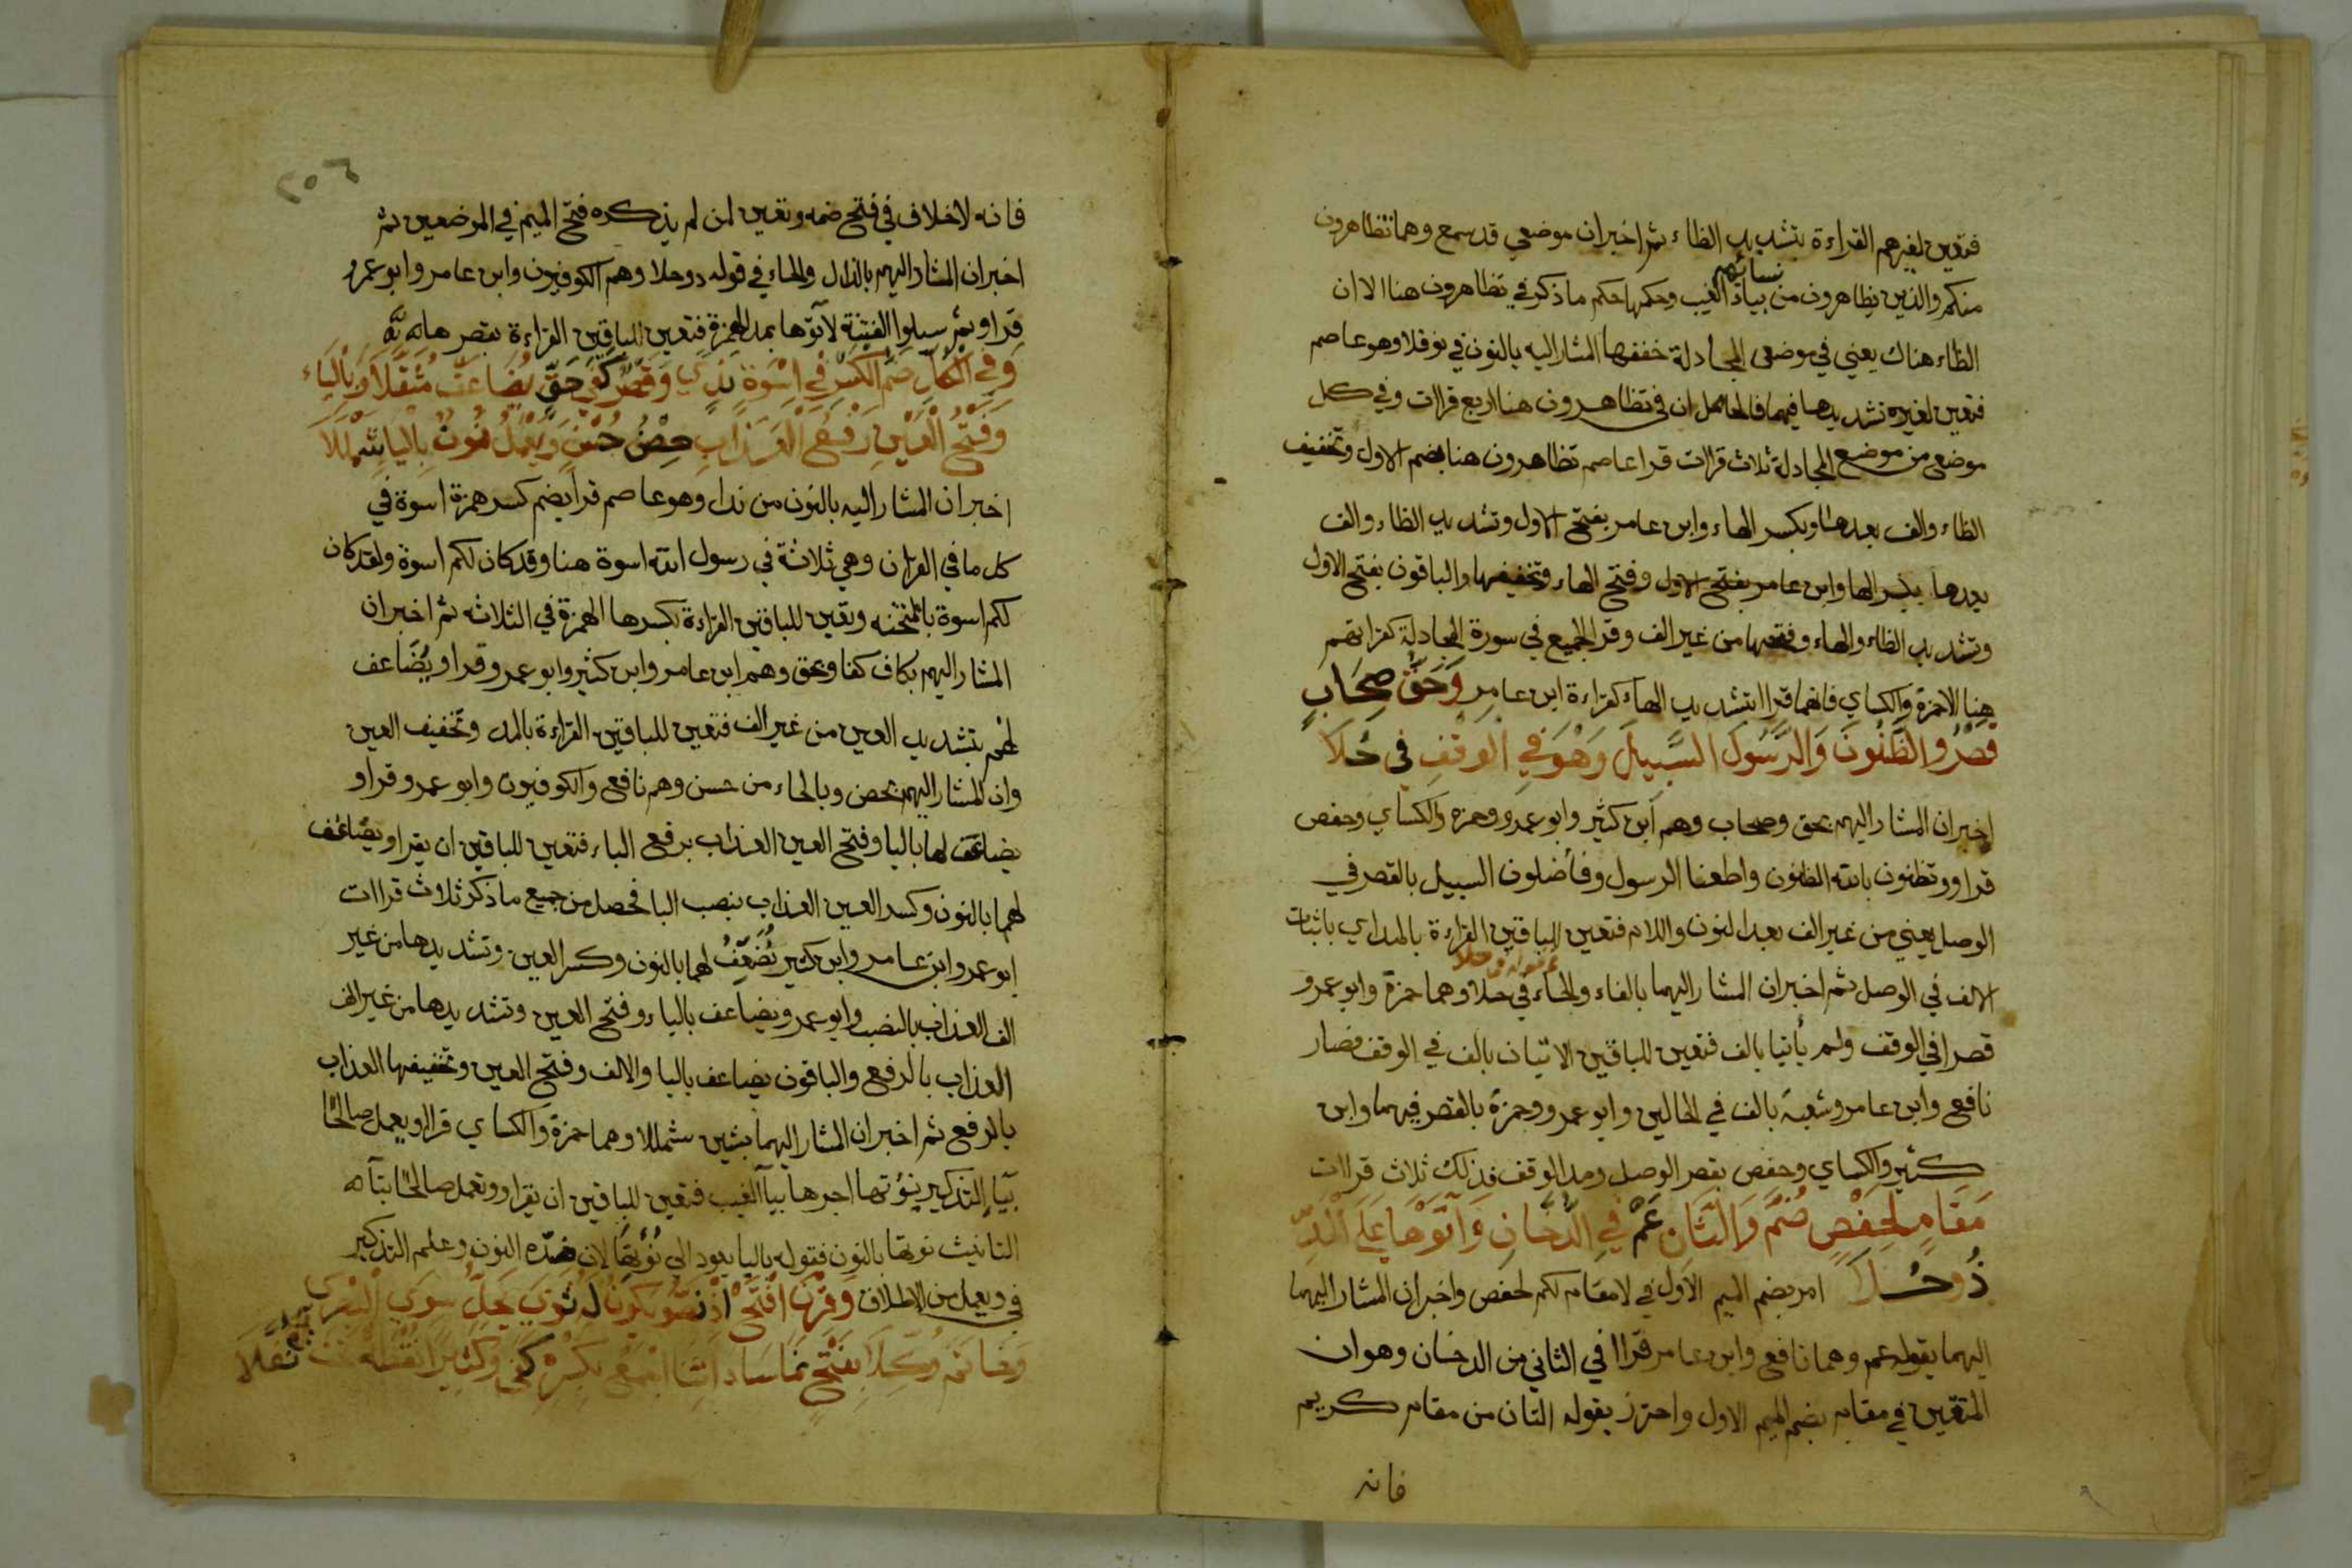 فتعين لغيرهم القراءة بتشديد الظاء ثم اخبر ان موضعي قد سمع وهما تظاهرون
منكم والذين يظاهرون من نسائهم بياء الغيب وحكمها حكم ما ذكر في تظاهرون هنا الا ان
الظاء هناك يعني في موضعي المجادلة خففها المشار اليه بالنون في نوفلا وهو عاصم
فتعين لغيره تشديدها فيهما فالحاصل ان في تظاهرون هنا اربع قراات وفي كل
موضعي من موضع المجادلة ثلاث قراات قرا عاصم تظاهرون هنا بضم الاول وتخفيف
الظاء والف بعدها وبكسر الهاء وابن عامر بفتح الاول وتشديد الظاء والف
بعدها بكسر الها وابن عامر بفتح الاول وفتح الهاء وتخفيفها والباقون بفتح الاول
وتشديد الظاء والهاء وفتحها من غير الف وقرا الجميع في سورة المجادلة كقراتهم
هنا الا حمزة والكساي فانهما قراا بتشديد الهاء كقراءة ابن عامر وَحَقُّ صِحَابٍ
قَصْرُ والظُّنُونَ وَالرَّسُولَ السَّبِيلَ وَهْوَ فِي الوقفِ في حُلَا
اخبر ان المشار اليهم بحق وصحاب وهم ابن كثير وابو عمرو وحمزه والكساي وحفص
قراوو تظنون بالله الظنون واطعنا الرسول وفاضلون السبيل بالقصر في
الوصل يعني من غير الف بعد النون واللام فتعين للباقين القراءة بالمد اي باثبات
الالف في الوصل ثم اخبر ان المشار اليهما بالفاء والحاء في حلا وهما حمزة وابو عمرو
قصرا في الوقف ولم يأتيا بالف فتعين للباقين الاتيان بالف في الوقف فصار
نافع وابن عامر وشعبة بالف في الحالين وابو عمرو وحمزة بالقصر فيهما وابن
كثير والكساي وحفص بقصر الوصل ومد الوقف فذلك ثلاث قراات
مَقَامٍ لِحَفْصٍ ضُمَّ وَالثَّانِ عَمَّ فِي الدُّخَانِ وَآتَوْهَا عَلَى الْمَدِّ
ذُو حُلَا امر بضم الميم الاول في لا مقام لكم لحفص واخبر ان المشار اليهما
اليهما بقوله عم وهما نافع وابن عامر قراا في الثاني من الدخان وهو ان
المتقين في مقام بضم الميم الاول واحترز بقوله الثان من مقام كريم
فانه
٢٠٦
فانه لا خلاف في فتح ضمه وتعين لمن لم يذكره فتح الميم في الموضعين ثم
اخبر ان المشار اليهم بالذال والحاء في قوله ذو حلا وهم الكوفيون وابن عامر وابو عمرو
قراو ثم سيلوا الفتنة لآتوها بمد الهمزة فتعين للباقين القراءة بقصرها
وَفِي الْكُلِّ ضَمُّ الْكَسْرِ فِي اِسْوَةٍ نَدًى وَقَصْرُ كَفَى حَقٍّ يُضَاعَفْ مُثَقَّلَا وَبِالْيَاء
وَفَتْحُ الْعَيْنِ رَفْعُ الْعَذَابِ حِصْنُ حُسْنٍ وَيَعْمَلْ نُؤْتِ بِالْيَا شَمْلَلَا
اخبر ان المشار اليه بالنون من ندا وهو عاصم قرا بضم كسر همزة اسوة في
كل ما في القران وهي ثلاثة في رسول الله اسوة هنا وقد كان لكم اسوة ولقد كان
لكم اسوة بالممتحنه وتعين للباقين القراءة بكسرها الهمزة في الثلاثه ثم اخبر ان
المشار اليهم بكاف كفا وبحق وهم ابن عامر وابن كثير وابو عمرو قراو يُضَاعف
لهم بتشديد العين من غير الف فتعين للباقين القراءة بالمد وتخفيف العين
وان المشار اليهم بحصن وبالحاء من حسن وهم نافع والكوفيون وابو عمرو قراو
يضاعف لها باليا وفتح العين العذاب برفع الباء فتعين للباقين ان يقراو يضاعف
لهما بالنون وكسر العين العذاب بنصب البا فحصل من جميع ما ذكر ثلاث قراات
ابو عمرو ابن عامر وابن كثير نُضَعِّفُ لهما بالنون وكسر العين وتشديدها من غير
الف العذاب بالنصب وابو عمرو يضاعف بالياء وفتح العين وتشديدها من غير الف
العذاب بالرفع والباقون يضاعف باليا والالف وفتح العين وتخفيفها العذاب
بالرفع ثم اخبر ان المشار اليهما بشين شمللا وهما حمزة والكساي قراا ويعمل صالحًا
بياء التذكير يؤتها اجرها بياء الغيب فتعين للباقين ان يقراوو تعمل صالحًا بتاء
التانيث نوتها بالنون فقوله باليا يعود الي نُؤْتِهَا لان ضده النون وعلم التذكير
في ويعمل من الاطلاق وَقِرْنَ افْتَحْ اذْ نَصُّوا يَكُونَ لَهُ ثَوَى يَحِلُّ سِوَى الْبَصْرِي
وَخَاتَمَ وُكِّلَا بِفَتْحٍ نَمَا سَادَاتِنَا اجْمَعْ بِكَسْرَةٍ كَفَى وَكَثِيرًا نُقْطَةٌ تَحْتُ نُفِّلَا